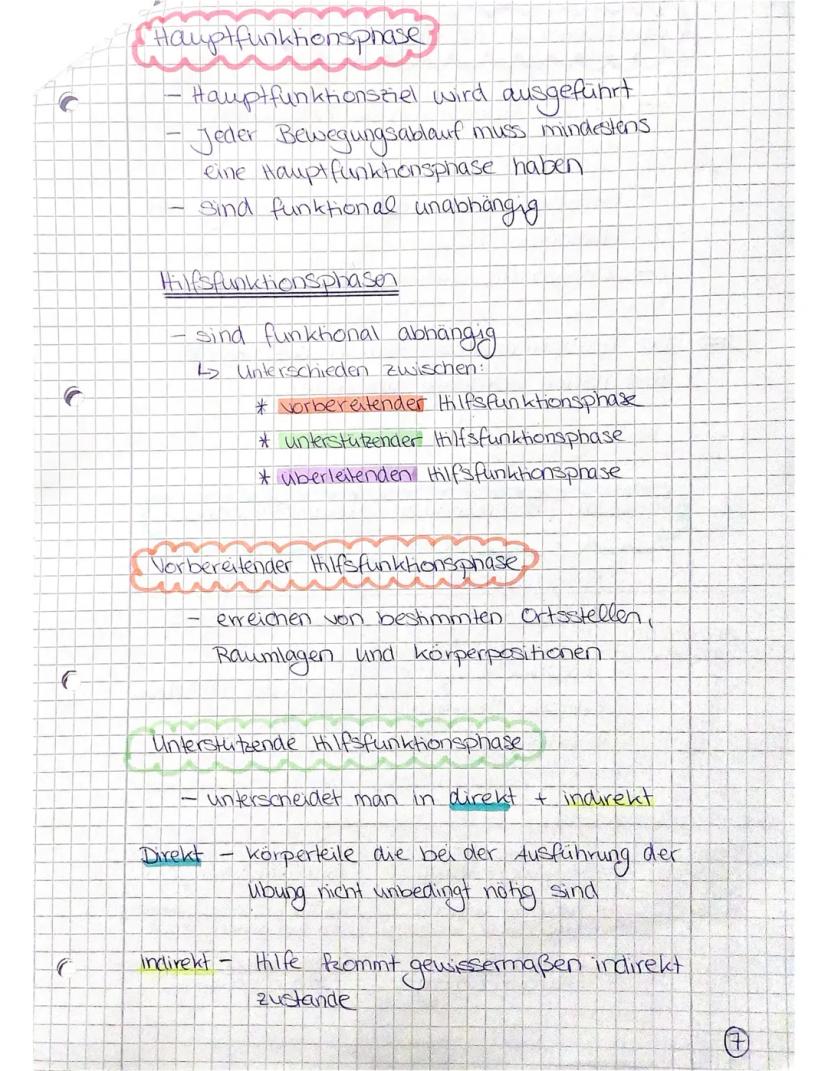 Hauptfunktionsphase
- Hauptfunktionsziel wird ausgeführt
- Jeder Bewegungsablauf muss mindestens
eine Hauptfunktionsphase haben
- sind funktional unabhängig
Hilfsfunktionsphasen
- sind funktional abhängig
↳ Unterschieden zwischen:
* vorbereitender Hilfsfunktionsphase
* unterstützender Hilfsfunktionsphase
* überleitenden Hilfsfunktionsphase
Vorbereitender Hilfsfunktionsphase
- erreichen von bestimmten Ortsstellen,
Raumlagen und Körperpositionen
Unterstützende Hilfsfunktionsphase
- unterscheidet man in direkt + indirekt
Direkt - Körperteile die bei der Ausführung der
Übung nicht unbedingt nötig sind
Indirekt - Hilfe kommt gewissermaßen indirekt
zustande
7